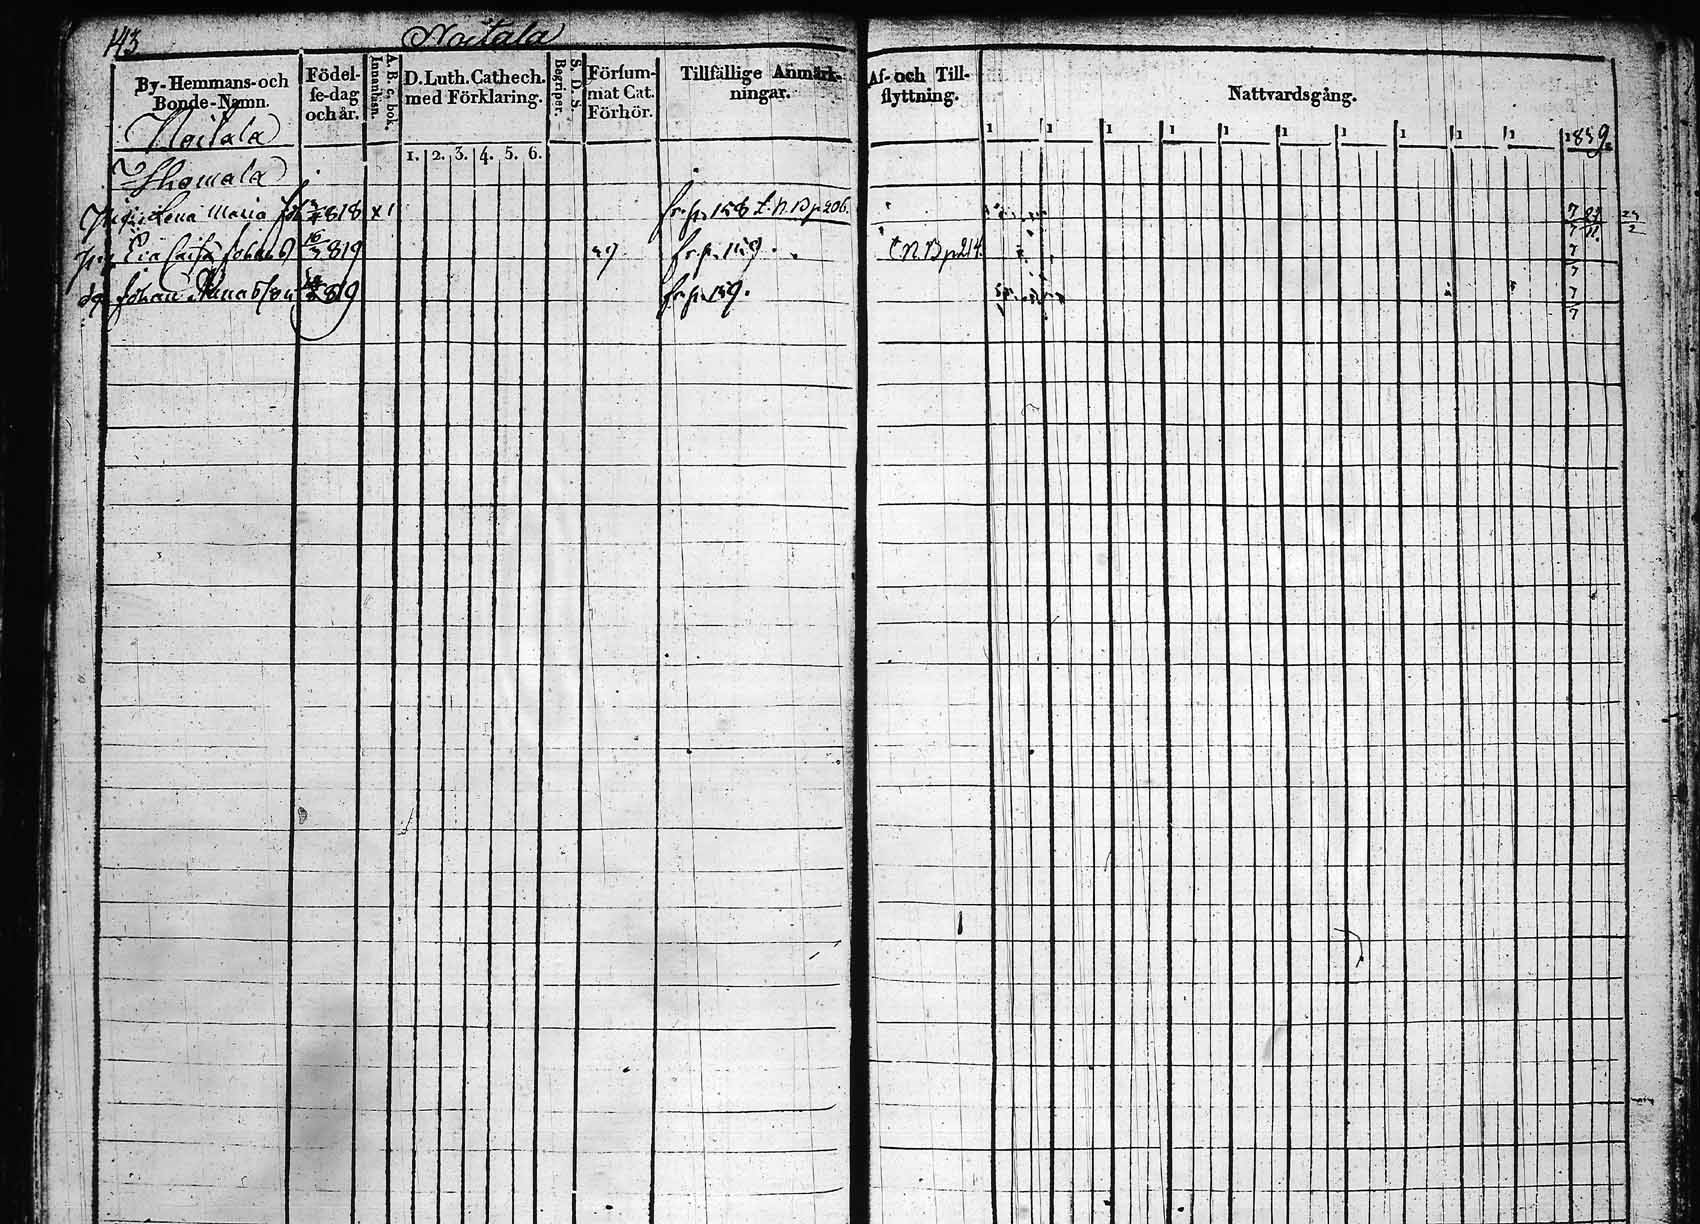 143
Noitala
By- Hemmans- och
Bonde-Namn.
Födel-
se-dag
och år.
A. B. c. bok.
Innanläsn.
D. Luth. Cathech.
med Förklaring.
S. D. S.
Begriper.
Försum-
mat Cat.
Förhör.
Tillfällige Anmärk-
ningar.
Af- och Till-
flyttning.
Nattvardsgång.
Noitala
1. 2. 3. 4. 5. 6.
1 1 1 1 1 1 1 1 1 1 1859.
Lena Maria 818 x 1 fr. p. 158 t. N. B p 206.
Johansd 16/3 819 fr. p. 159. t N. B p 214.
Johan 819 fr. p. 159.
7
7
7
7
7
7